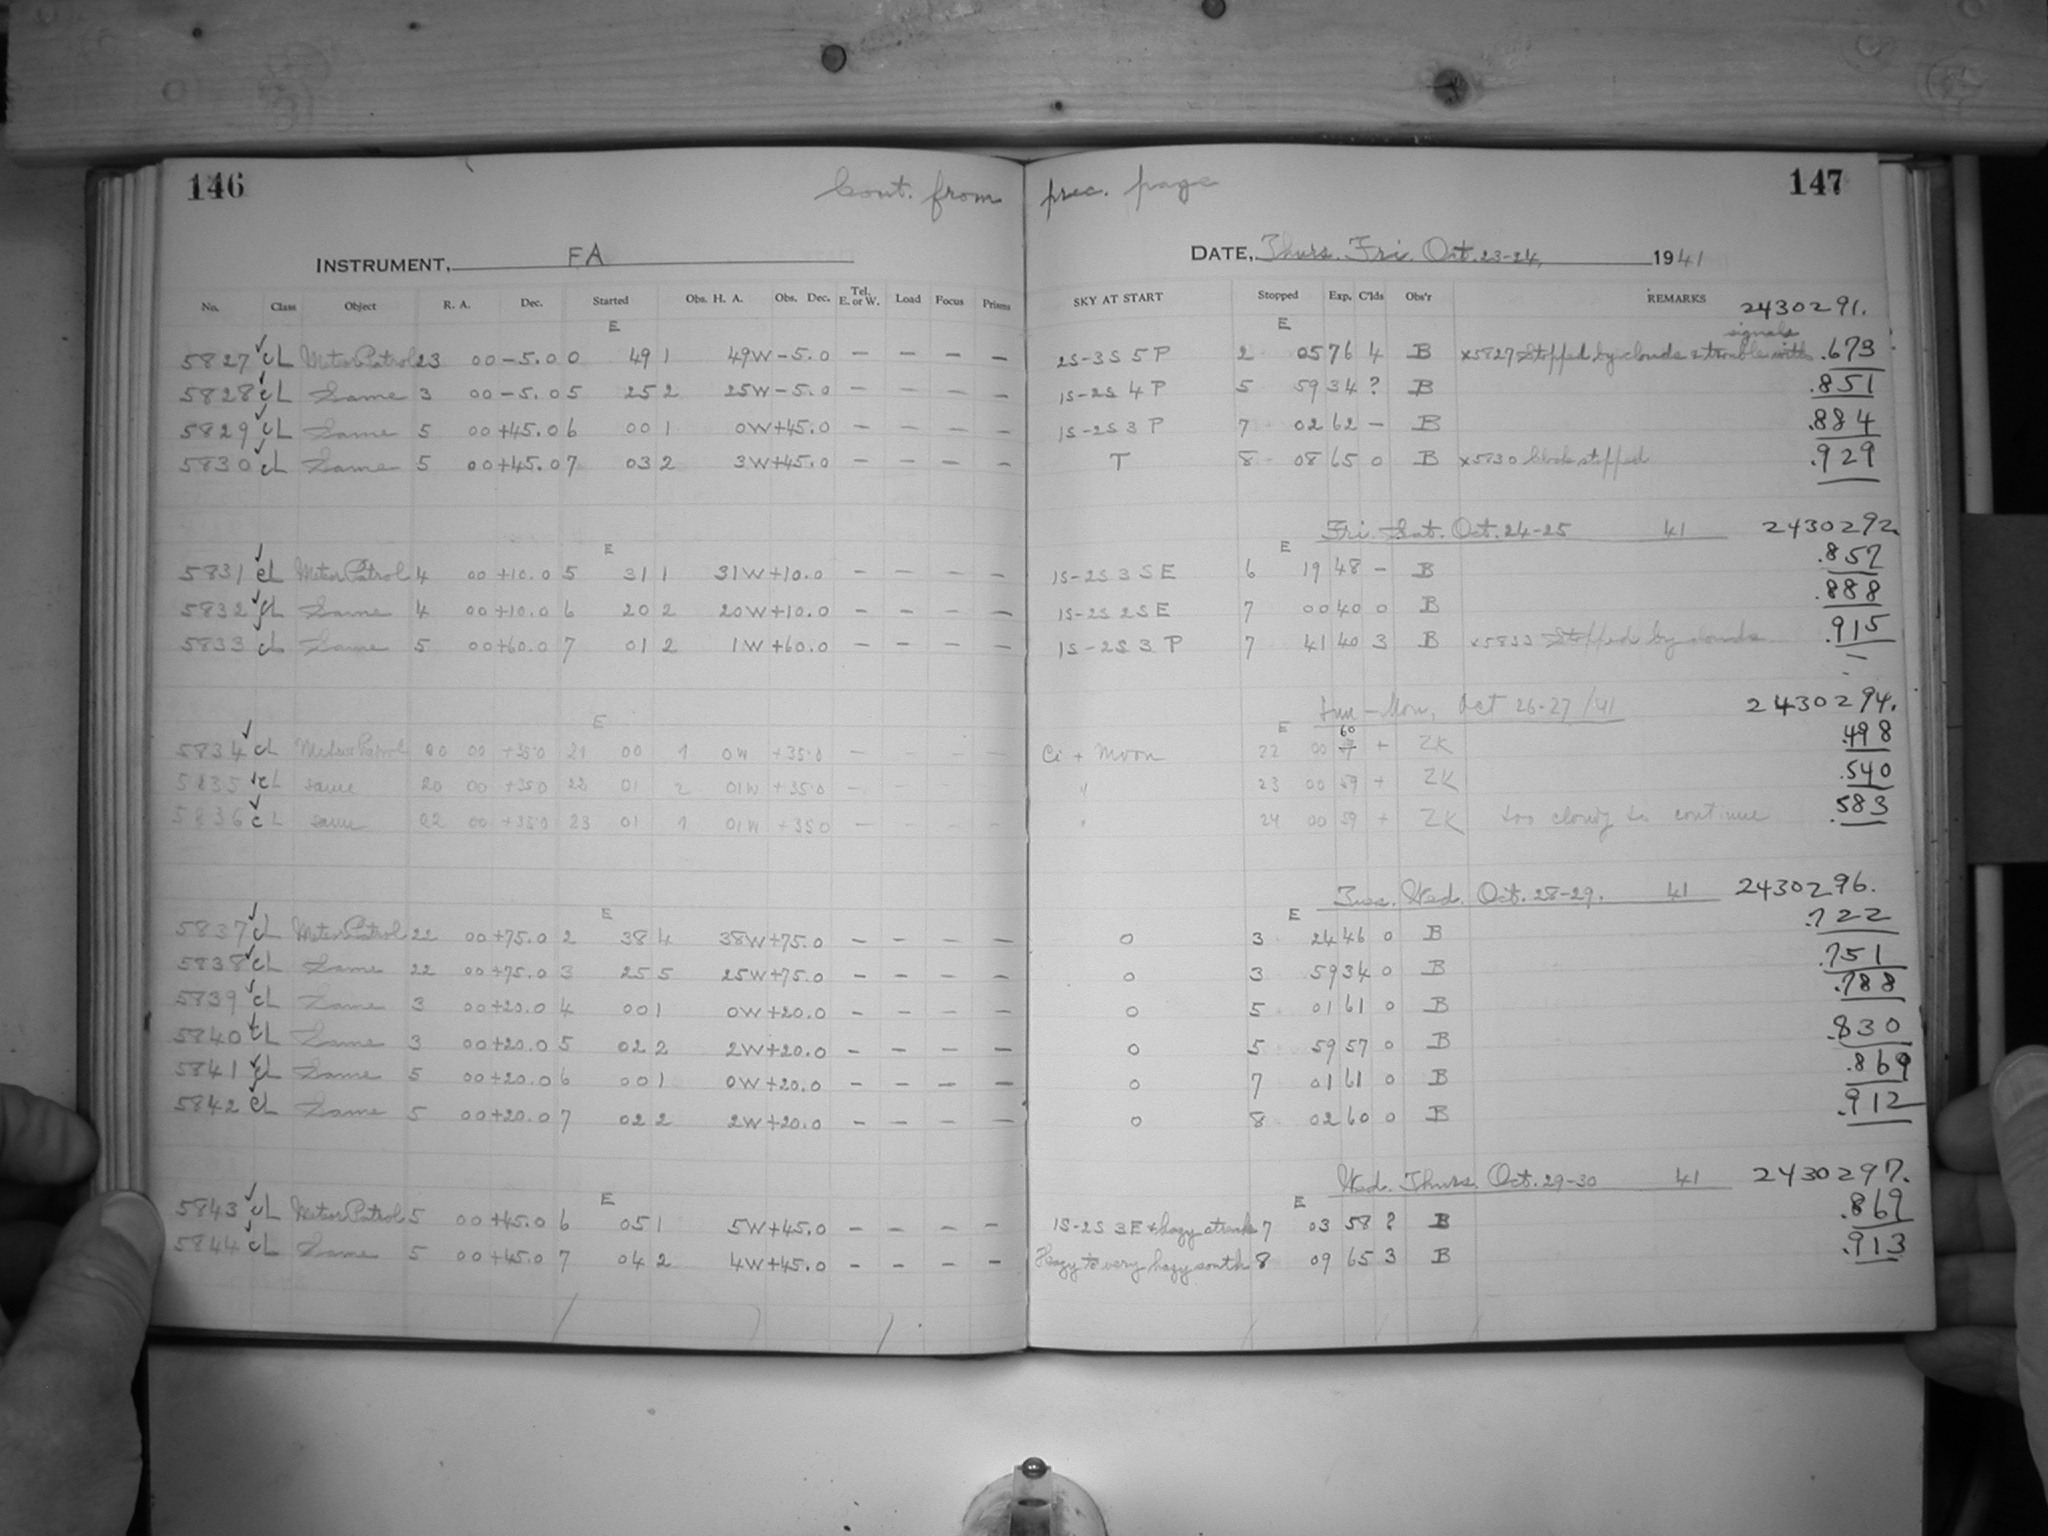 146 Cont. from prec. page 147
INSTRUMENT, FA DATE, Thurs. Fri. Oct. 23-24, 1941
No. Class Object R. A. Dec. Started Obs. H. A. Obs. Dec. Tel. E. or W. Load Focus Prisms SKY AT START Stopped Exp. C'lds Obs'r REMARKS 2430291.
E E signals
5827 ✓ cL Meteor Patrol 23 00 -5.0 0 49 1 49W -5.0 — — — — 2S-3S 5P 2 05 76 4 B x5827 Stopped by clouds & trouble with .673
5828 ✓ cL Same 3 00 -5.0 5 25 2 25W -5.0 — — — — 1S-2S 4P 5 59 34 ? B .851
5829 ✓ cL Same 5 00 +45.0 6 00 1 0W +45.0 — — — — 1S-2S 3P 7 02 62 — B .884
5830 ✓ cL Same 5 00 +45.0 7 03 2 3W +45.0 — — — — T 8 08 65 0 B x5830 Clock stopped .929
Fri. Sat. Oct. 24-25 41 2430292.
E E
5831 ✓ cL Meteor Patrol 4 00 +10.0 5 31 1 31W +10.0 — — — — 1S-2S 3SE 6 19 48 — B .857
5832 ✓ cL Same 4 00 +10.0 6 20 2 20W +10.0 — — — — 1S-2S 2SE 7 00 40 0 B .888
5833 cL Same 5 00 +60.0 7 01 2 1W +60.0 — — — — 1S-2S 3P 7 41 40 3 B x5833 Stopped by clouds .915
Sun - Mon, Oct 26-27/41 2430294.
E E 60
5834 ✓ cL Meteor Patrol 20 00 +35.0 21 00 1 0W +35.0 — — — — Ci + Moon 22 00 + ZK .498
5835 ✓ cL same 20 00 +35.0 22 01 2 01W +35.0 — — — — " 23 00 59 + ZK .540
5836 ✓ cL same 22 00 +35.0 23 01 1 01W +35.0 — — — — " 24 00 59 + ZK too cloudy to continue .583
Tues. Wed. Oct. 28-29. 41 2430296.
E E
5837 ✓ cL Meteor Patrol 22 00 +75.0 2 38 4 38W +75.0 — — — — 0 3 24 46 0 B .722
5838 ✓ cL Same 22 00 +75.0 3 25 5 25W +75.0 — — — — 0 3 59 34 0 B .751
5839 ✓ cL Same 3 00 +20.0 4 00 1 0W +20.0 — — — — 0 5 01 61 0 B .788
5840 ✓ cL Same 3 00 +20.0 5 02 2 2W +20.0 — — — — 0 5 59 57 0 B .830
5841 ✓ cL Same 5 00 +20.0 6 00 1 0W +20.0 — — — — 0 7 01 61 0 B .869
5842 ✓ cL Same 5 00 +20.0 7 02 2 2W +20.0 — — — — 0 8 02 60 0 B .912
Wed. Thurs. Oct. 29-30 41 2430297.
E E
5843 ✓ cL Meteor Patrol 5 00 +45.0 6 05 1 5W +45.0 — — — — 1S-2S 3E & hazy streaks 7 03 58 ? B .869
5844 ✓ cL Same 5 00 +45.0 7 04 2 4W +45.0 — — — — Hazy to very hazy south 8 09 65 3 B .913